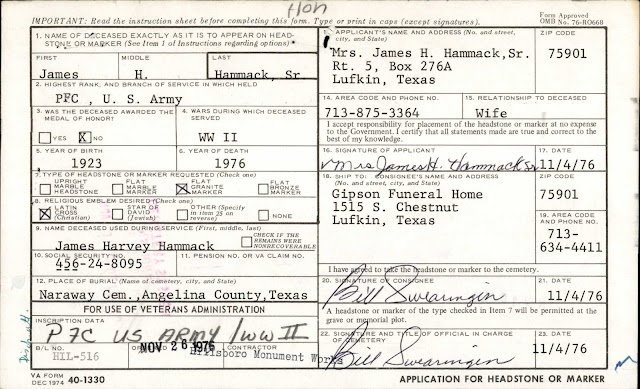 Hon
IMPORTANT: Read the instruction sheet before completing this form. Type or print in caps (except signatures).
Form Approved
OMB No. 76-RO668
1. NAME OF DECEASED EXACTLY AS IT IS TO APPEAR ON HEAD-
STONE OR MARKER (See Item 1 of Instructions regarding options)
FIRST
MIDDLE
LAST
James
H.
Hammack, Sr
2. HIGHEST RANK, AND BRANCH OF SERVICE IN WHICH HELD
PFC, U. S. Army
3. WAS THE DECEASED AWARDED THE
MEDAL OF HONOR?
YES X NO
4. WARS DURING WHICH DECEASED
SERVED
WW II
5. YEAR OF BIRTH
1923
6. YEAR OF DEATH
1976
7. TYPE OF HEADSTONE OR MARKER REQUESTED (Check one)
UPRIGHT
MARBLE
HEADSTONE
FLAT
MARBLE
MARKER
X FLAT
GRANITE
MARKER
FLAT
BRONZE
MARKER
8. RELIGIOUS EMBLEM DESIRED (Check one)
X LATIN
CROSS
(Christian)
STAR OF
DAVID
(Jewish)
OTHER (Specify
in item 25 on
reverse)
NONE
9. NAME DECEASED USED DURING SERVICE (First, middle, last)
James Harvey Hammack
CHECK IF THE
REMAINS WERE
NONRECOVERABLE
10. SOCIAL SECURITY NO.
456-24-8095
11. PENSION NO. OR VA CLAIM NO.
12. PLACE OF BURIAL (Name of cemetery, city, and State)
Naraway Cem., Angelina County, Texas
FOR USE OF VETERANS ADMINISTRATION
INSCRIPTION DATA
PFC US ARMY / WW II
B/L NO.
HIL-516
NOV 26 1976
CONTRACTOR
Hillsboro Monument Works
VA FORM
DEC 1974 40-1330
APPLICANT'S NAME AND ADDRESS (No. and street,
city, and State)
Mrs. James H. Hammack, Sr.
Rt. 5, Box 276A
Lufkin, Texas
ZIP CODE
75901
14. AREA CODE AND PHONE NO.
713-875-3364
15. RELATIONSHIP TO DECEASED
Wife
I accept responsibility for placement of the headstone or marker at no expense
to the Government. I certify that all statements made are true and correct to the
best of my knowledge.
16. SIGNATURE OF APPLICANT
Mrs James H. Hammack Sr.
17. DATE
11/4/76
18. SHIP TO: CONSIGNEE'S NAME AND ADDRESS
(No. and street, city, and State)
Gipson Funeral Home
1515 S. Chestnut
Lufkin, Texas
ZIP CODE
75901
19. AREA CODE
AND PHONE NO.
713-
634-4411
I have agreed to take the headstone or marker to the cemetery.
20. SIGNATURE OF CONSIGNEE
Bill Swearingin
21. DATE
11/4/76
A headstone or marker of the type checked in Item 7 will be permitted at the
grave or memorial plot.
22. SIGNATURE AND TITLE OF OFFICIAL IN CHARGE
OF CEMETERY
Bill Swearingin
23. DATE
11/4/76
APPLICATION FOR HEADSTONE OR MARKER